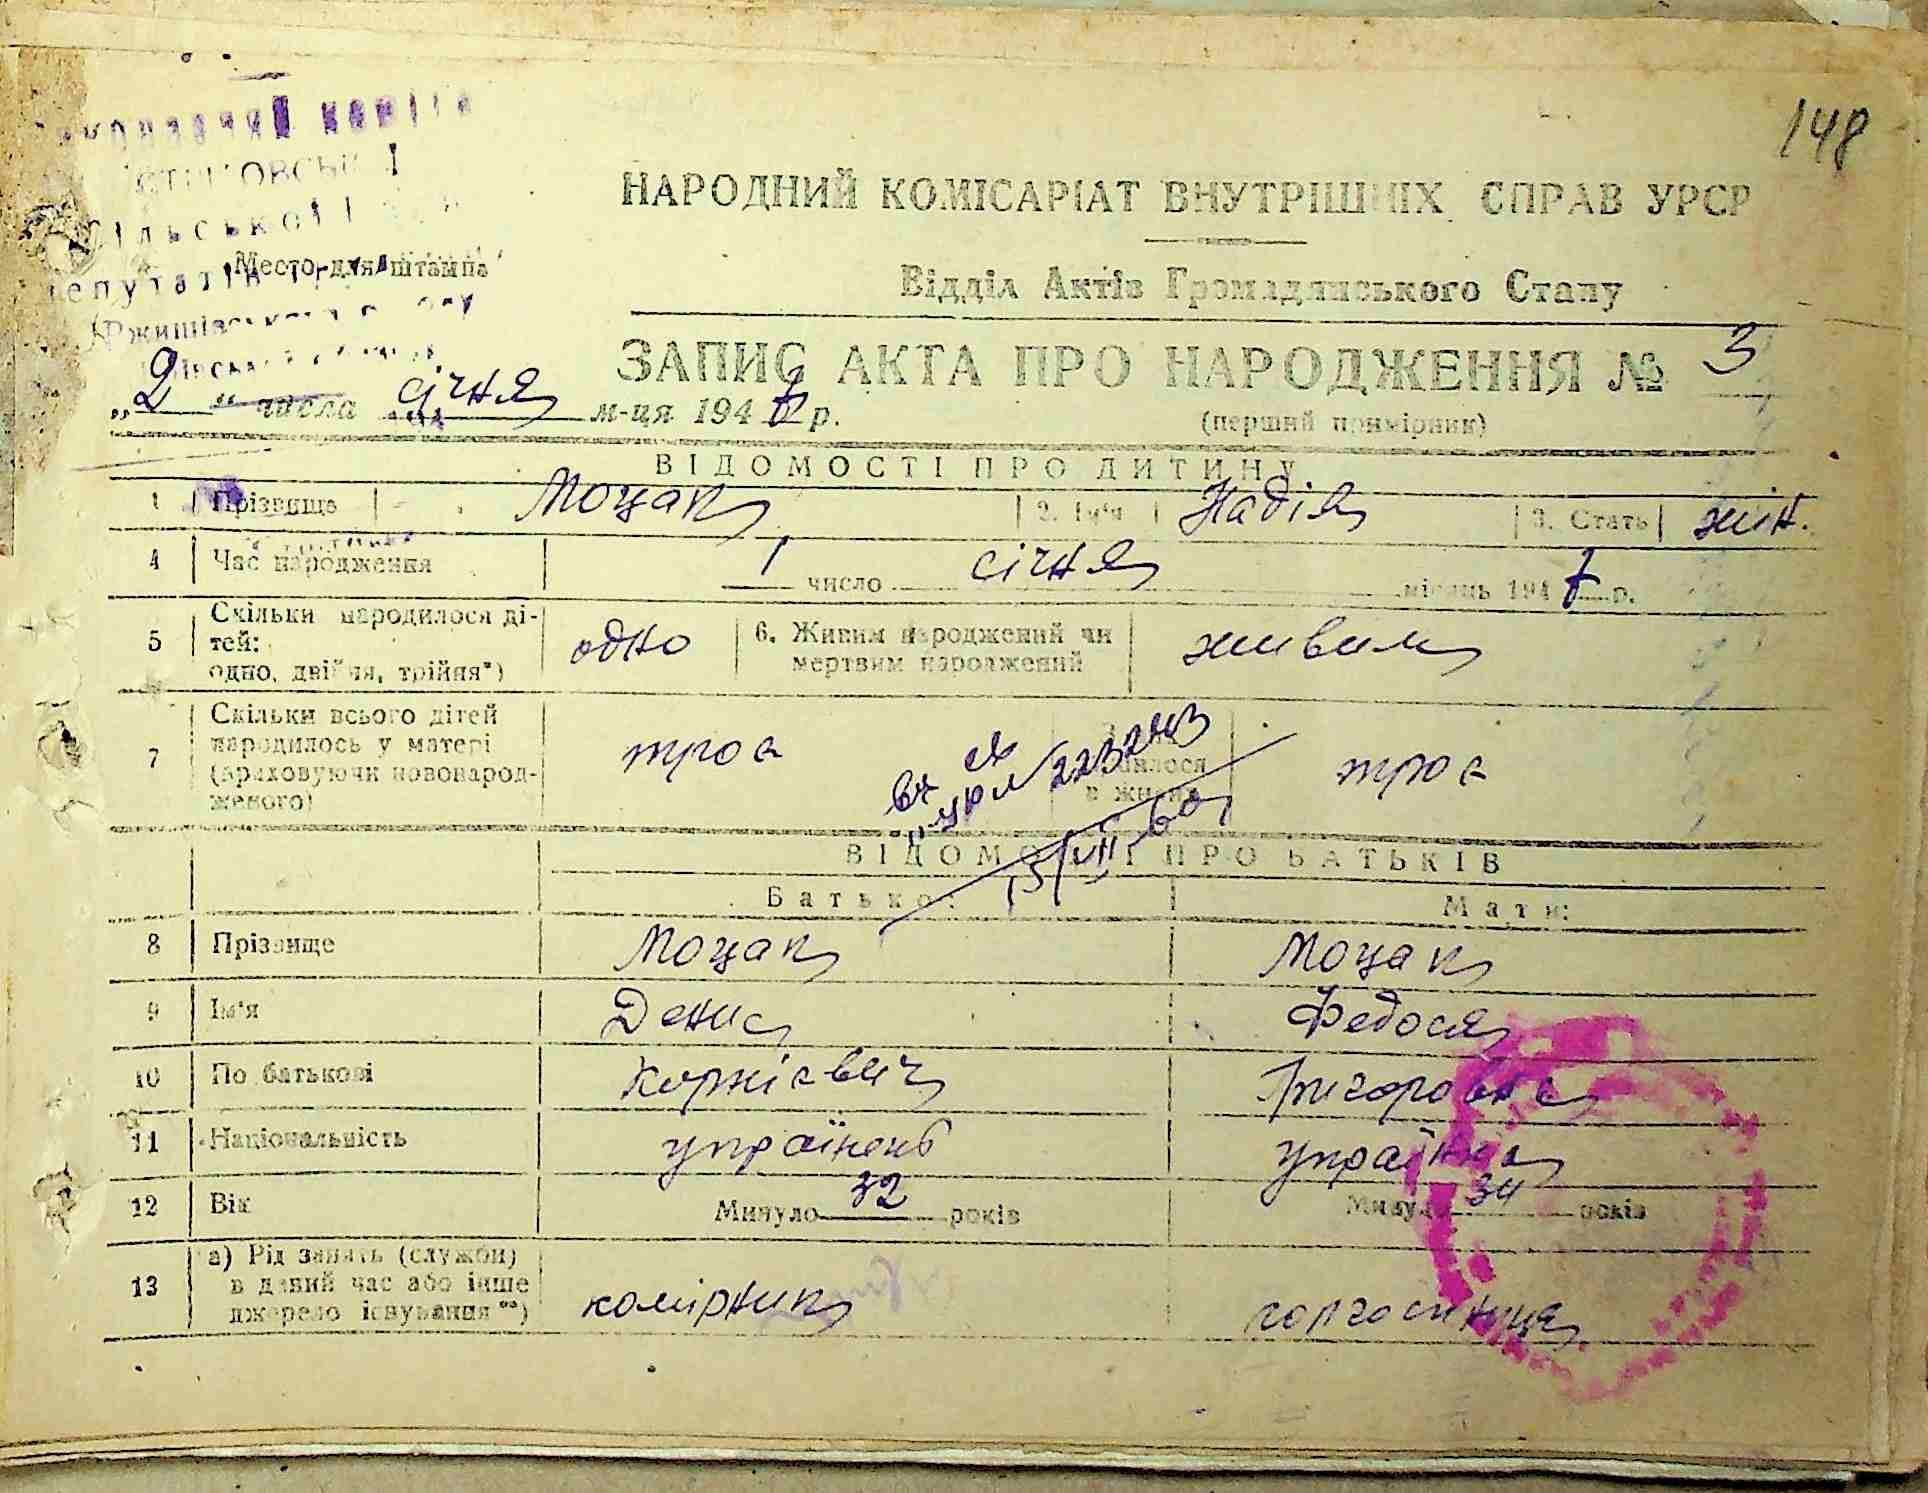 148
НАРОДНИЙ КОМІСАРІАТ ВНУТРІШНІХ СПРАВ УРСР
Місто для штампа
Відділ Актів Громадянського Стану
ЗАПИС АКТА ПРО НАРОДЖЕННЯ № 3
„2“ числа січня м-ця 1947 р.
(перший примірник)
ВІДОМОСТІ ПРО ДИТИНУ
1 Прізвище Моцак 2. Ім'я Надія 3. Стать жін.
4 Час народження 1 число січня місяць 1947 р.
5 Скільки народилося дітей: одно, двійня, трійня*) одно 6. Живим народжений чи мертвим народжений живим
7 Скільки всього дітей народилось у матері (враховуючи новонародженого) троє троє
223243
ВІДОМОСТІ ПРО БАТЬКІВ
Батько: Мати:
8 Прізвище Моцак Моцак
9 Ім'я Денис Федося
10 По батькові Корнієвич Григоровна
11 Національність українець українка
12 Вік Минуло 32 років Минуло 34 років
13 а) Рід занять (служби) в даний час або інше джерело існування**) комірник колгоспниця